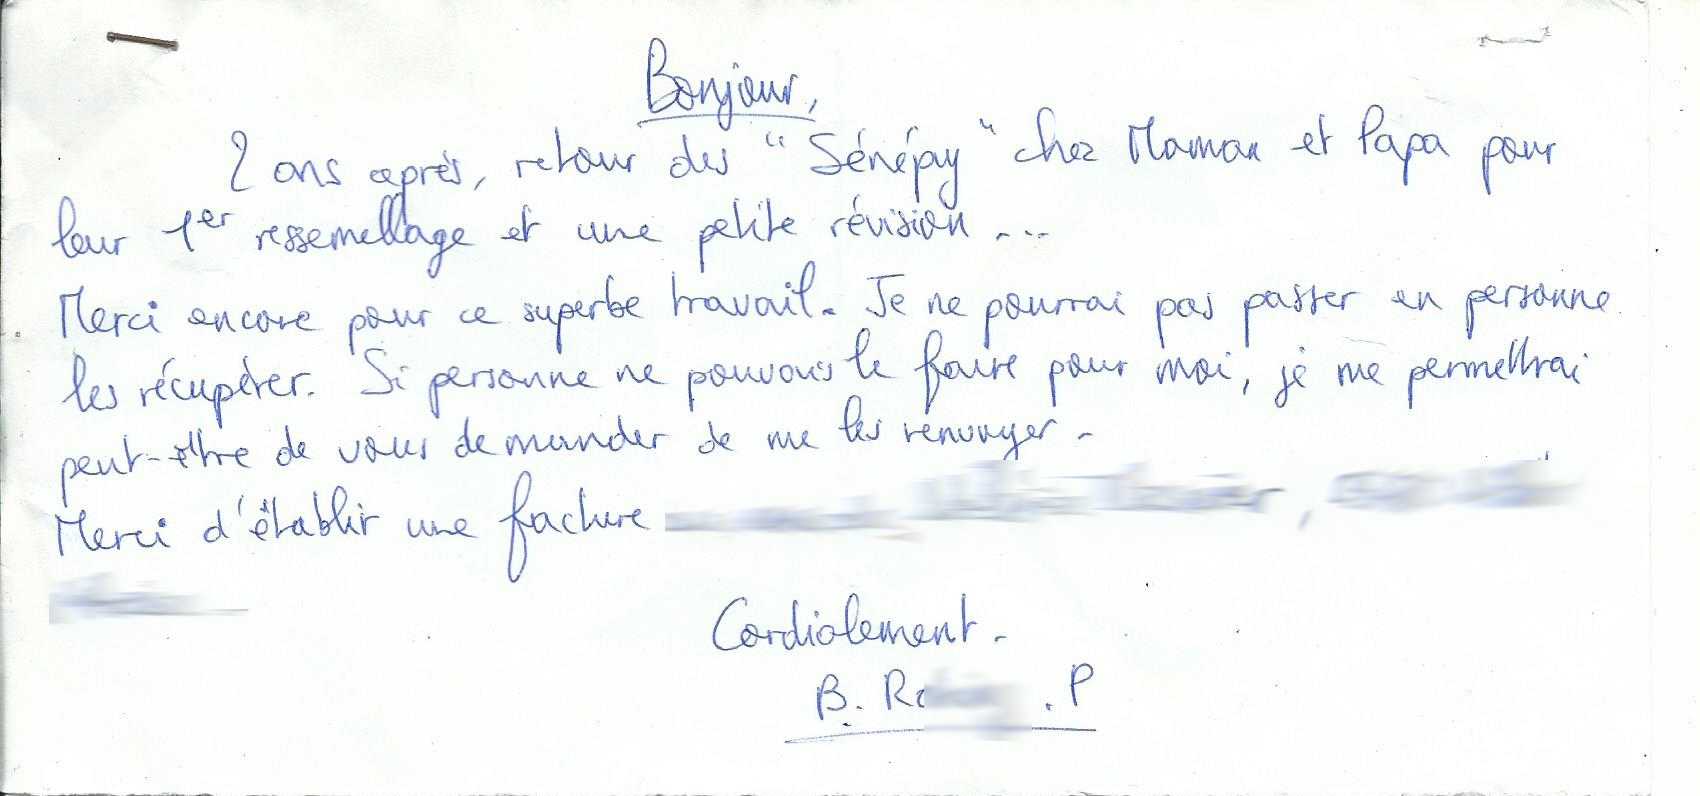 Bonjour,
2 ans après, retour des "Sénépy" chez Maman et Papa pour
leur 1er ressemellage et une petite révision...
Merci encore pour ce superbe travail. Je ne pourrai pas passer en personne
les récupérer. Si personne ne pouvais le faire pour moi, je me permettrai
peut-être de vous demander de me les renvoyer.
Merci d'établir une facture
Cordialement.
B. R . P